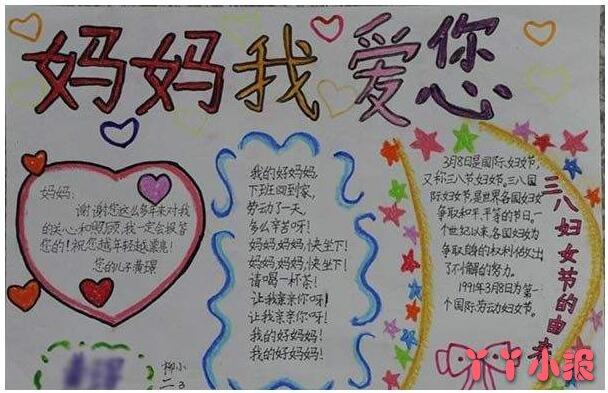 妈妈我爱您
妈妈:
谢谢您这么多年来对我
的关心和照顾,我一定会报答
您的!祝您越年轻越漂亮!
您的儿子黄璟
我的好妈妈,
下班回到家,
劳动了一天,
多么辛苦呀!
妈妈,妈妈,快坐下!
妈妈,妈妈,快坐下!
请喝一杯茶!
让我亲亲你呀!
让我亲亲你呀!
我的好妈妈!
我的好妈妈!
3月8是国际妇女节,
又称三八节妇女节。三八国
际妇女节,是世界各国妇女
争取和平、平等的节日,一
个世纪以来,各国妇女为
争取她们的权利做出
了不懈的努力。
1991年3月8日为第一
个国际劳动妇女节。
三八妇女节的由来
柳小
二3
丫丫小报